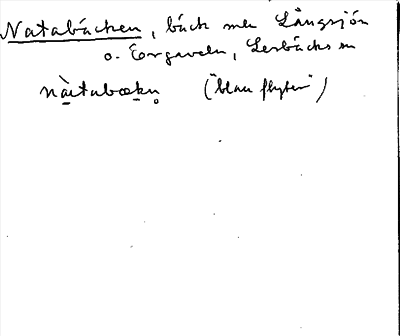 Natabäcken, bäck mell Långsjön
o. Torgaveln, Lerbäcks sn
nàetabæku̥ ("blau flyter")